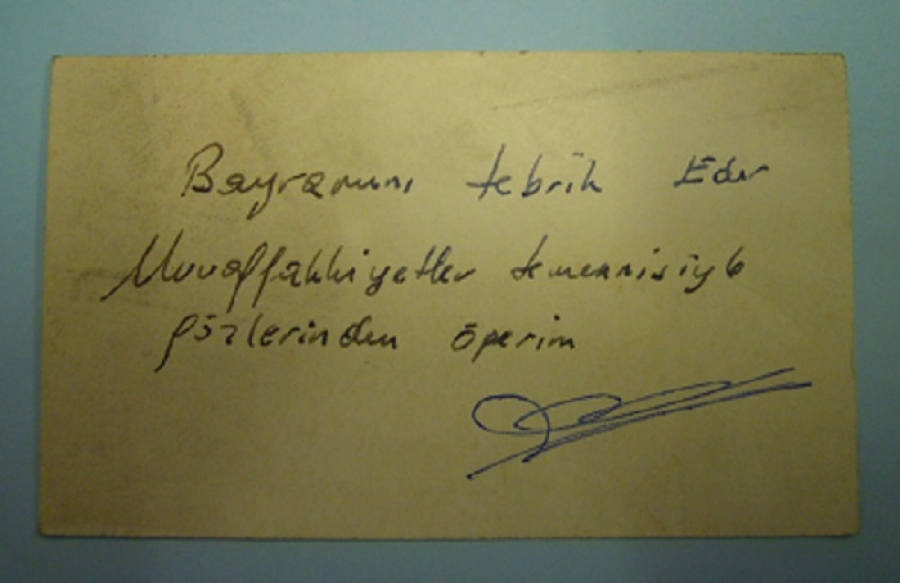 Bayramını tebrik Eder
Muvaffakkiyetler temennisiyle
gözlerinden öperim